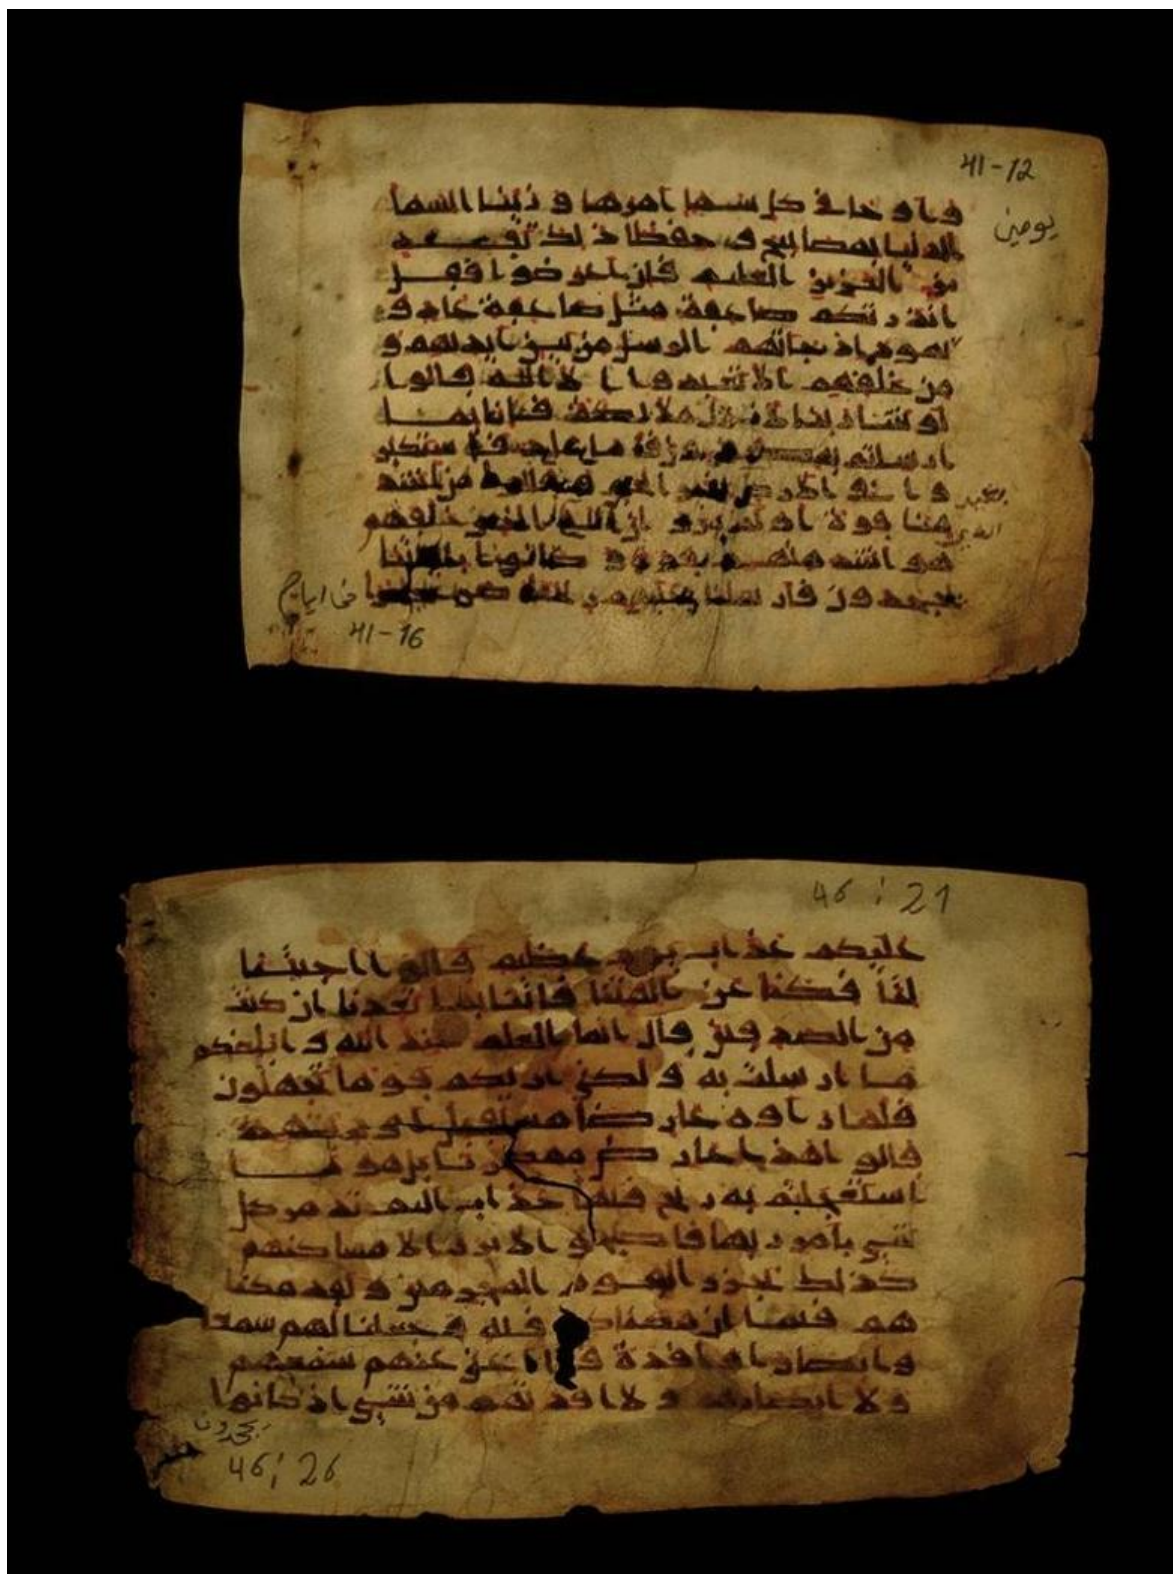 41-12
يومين
و اوحا في كل سما امرها و زينا السما
الدنيا بمصابيح و حفظا ذلك تقد
ير العزيز العليم فان اعرضوا فقل
انذرتكم صاعقة مثل صاعقة عاد و
ثمود اذ جاتهم الرسل من بين ايديهم و
من خلفهم الا تعبدوا الا الله قالوا
لو شا ربنا لانزل ملائكة فانا بما
ارسلتم به عاد فاستكبر
وا في الارض بغير الحق وقالوا من اشد
منا قوة او لم يرو ان الله الذي خلقهم
هو اشد منهم قوة و كانوا بايتنا
يجحدون فارسلنا عليهم
في ايام
41-16
46:21
عليكم عذاب يوم عظيم قالوا اجيتنا
لتا فكنا عن الهتنا فاتنا بما تعدنا ان كنت
من الصدقين قال انما العلم عند الله و ابلغكم
ما ارسلت به و لكني اريكم قوما تجهلون
فلما راوه عارضا مستقبل اوديتهم
قالو هذا عارض ممطرنا بل هو ما
استعجلتم به ريح فيها عذاب اليم تدمر كل
شي بامر ربها فاصبحوا لا يرى الا مساكنهم
كذلك نجزي القوم المجرمين و لقد مكنا
هم فيما ان مكناكم فيه و جعلنا لهم سمعا
و ابصارا و افدة فما اغنى عنهم سمعهم
و لا ابصارهم و لا افدتهم من شي اذ كانوا
يجحدون
46:26